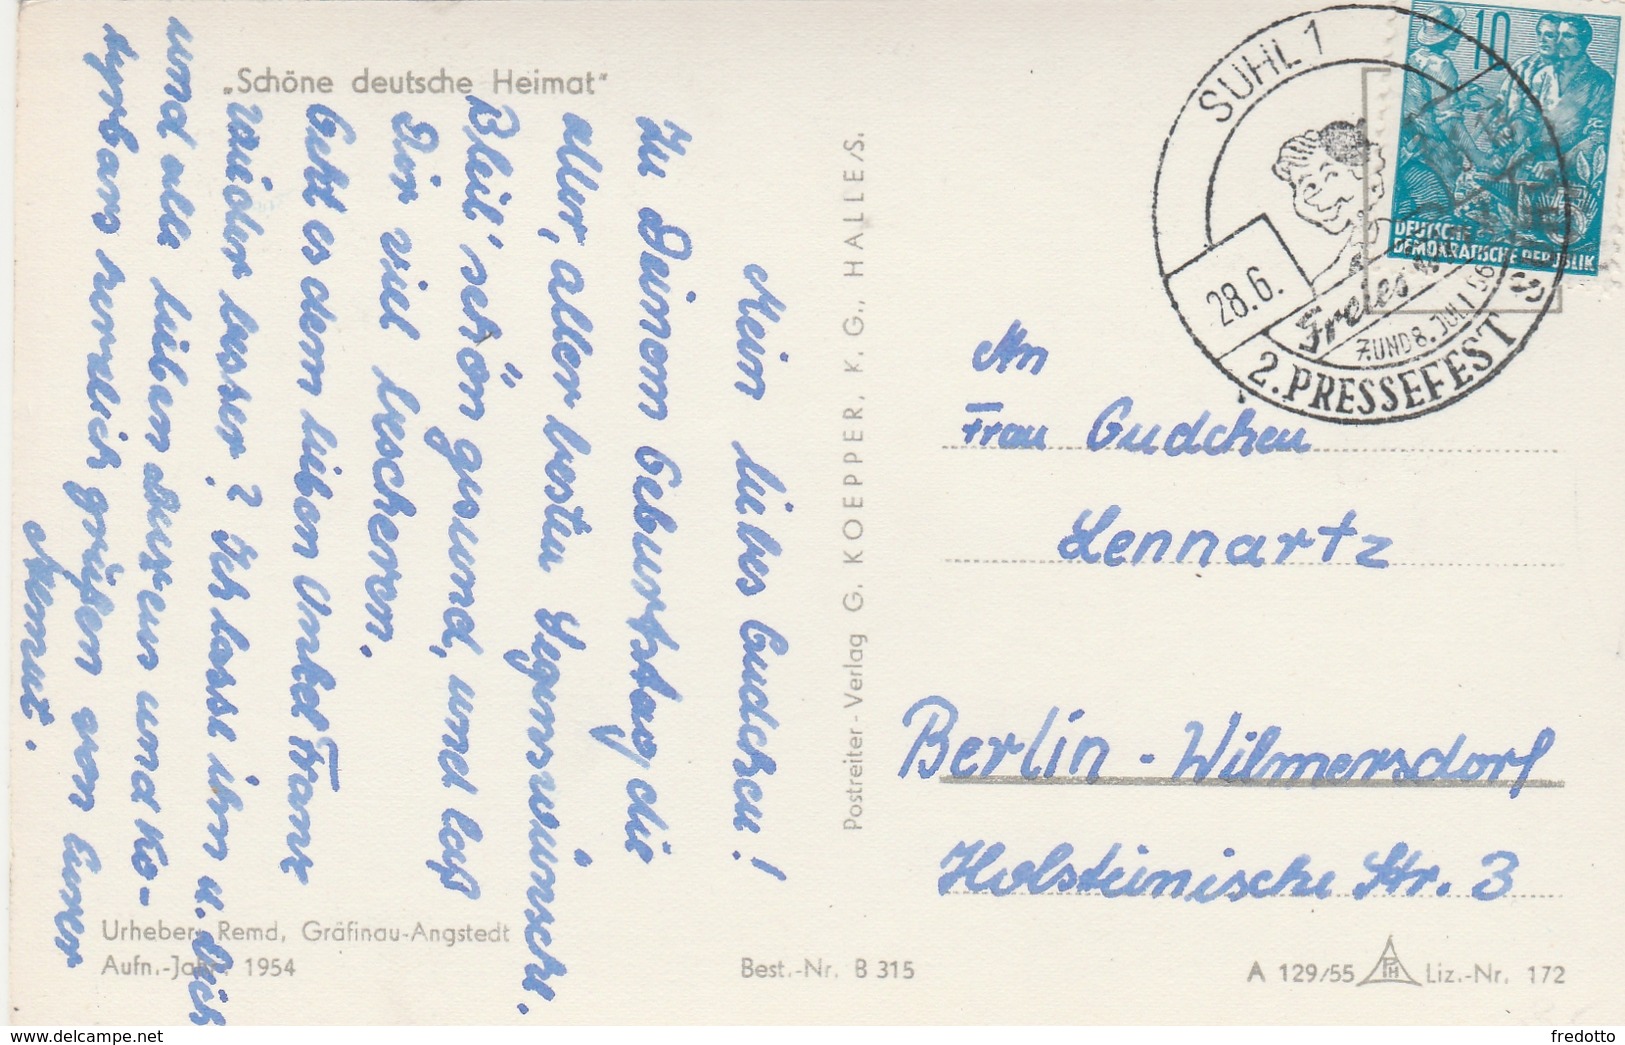 „Schöne deutsche Heimat"
Mein liebes Gudchen!
Zu Deinem Geburtstag die
aller, aller besten Segenswünsche.
Bleib' schön gesund, und laß
Dir viel bescheren.
Geht es dem lieben Onkel Franz
wieder besser? Ich lasse ihn u. Dich
und alle lieben
herzlich grüßen von Eurer
Helmut.
Urheber: Remd, Gräfinau-Angstedt
Aufn.-Jahr: 1954
Best.-Nr. B 315
Postreiter-Verlag G. KOEPPER, K. G., HALLE/S.
SUHL 1
28.6.
Freies
7. UND 8. JULI 56
2. PRESSEFEST
10
DEUTSCHE
DEMOKRATISCHE REPUBLIK
An
Frau Gudchen
Lennartz
Berlin - Wilmersdorf
Holsteinische Str. 3
A 129/55 PH Liz.-Nr. 172
www.delcampe.net
fredotto